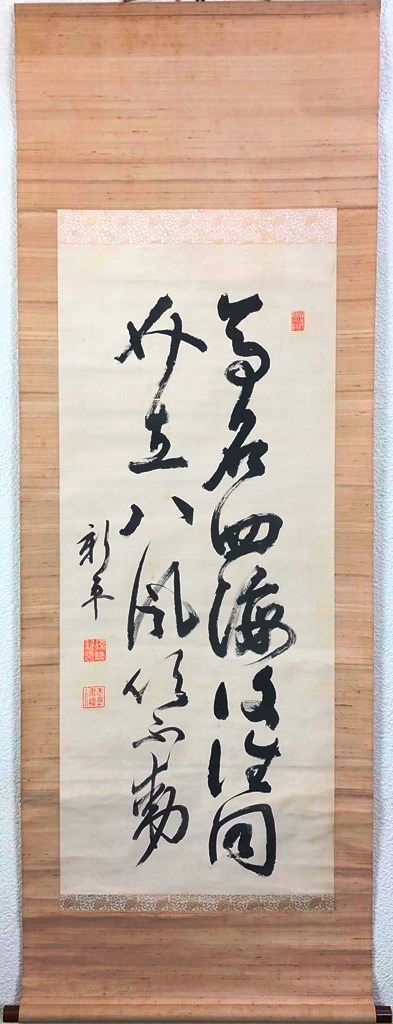 高名四海復誰同
介立八風吹不動
新平